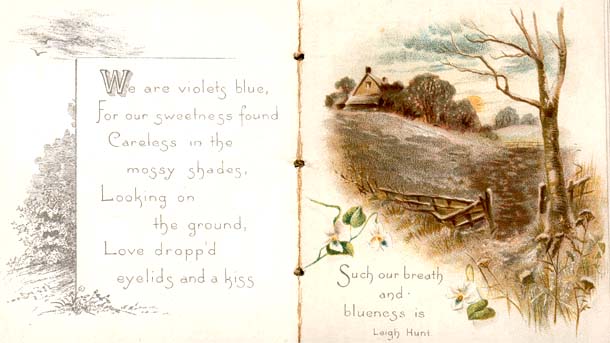 We are violets blue,
For our sweetness found
Careless in the
mossy shades,
Looking on
the ground,
Love dropp'd
eyelids and a kiss
Such our breath
and
blueness is
Leigh Hunt.